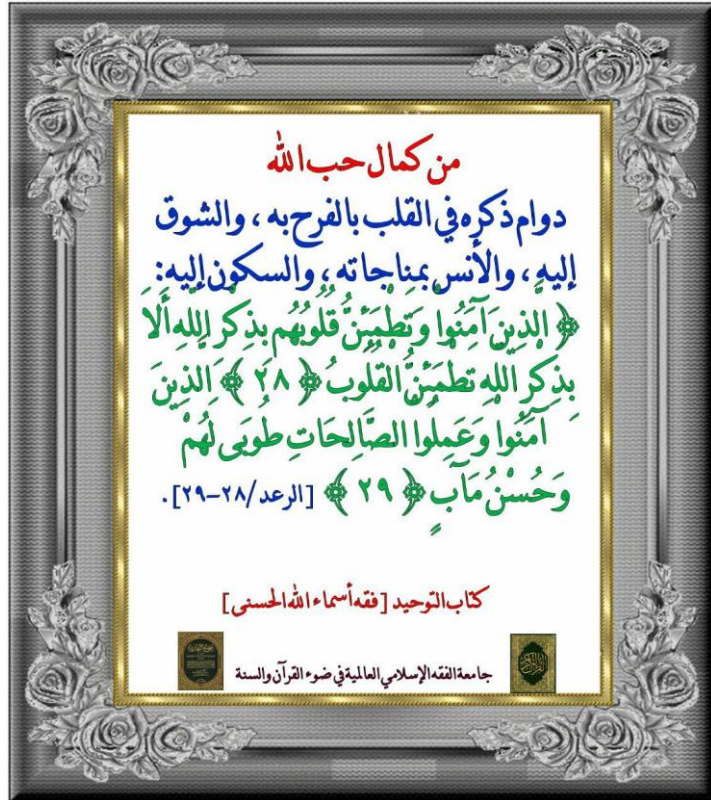 من كمال حب الله
دوام ذكره في القلب بالفرح به ، والشوق
إليه ، والأنس بمناجاته ، والسكون إليه:
﴿ الَّذِينَ آمَنُوا وَتَطْمَئِنُّ قُلُوبُهُم بِذِكْرِ اللَّهِ أَلَا
بِذِكْرِ اللَّهِ تَطْمَئِنُّ الْقُلُوبُ ﴿ ٢٨ ﴾ الَّذِينَ
آمَنُوا وَعَمِلُوا الصَّالِحَاتِ طُوبَى لَهُمْ
وَحُسْنُ مَآبٍ ﴿ ٢٩ ﴾ [الرعد/٢٨-٢٩].
كتاب التوحيد [فقه أسماء الله الحسنى]
جامعة الفقه الإسلامي العالمية في ضوء القرآن والسنة